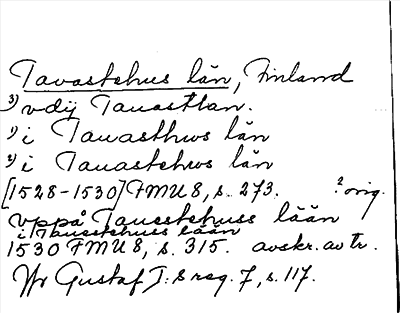 Tavastehus län, Finland
3) vdij Tauastlan.
1) i Tauasthws län
2) i Tauastehws län
[1528-1530] FMU 8, s. 273. ? orig.
vppå Tauestehuss lään
i Tauestehuss lään
1530 FMU 8, s. 315. avskr. av tr.
Gustaf I:s reg. 7, s. 117.